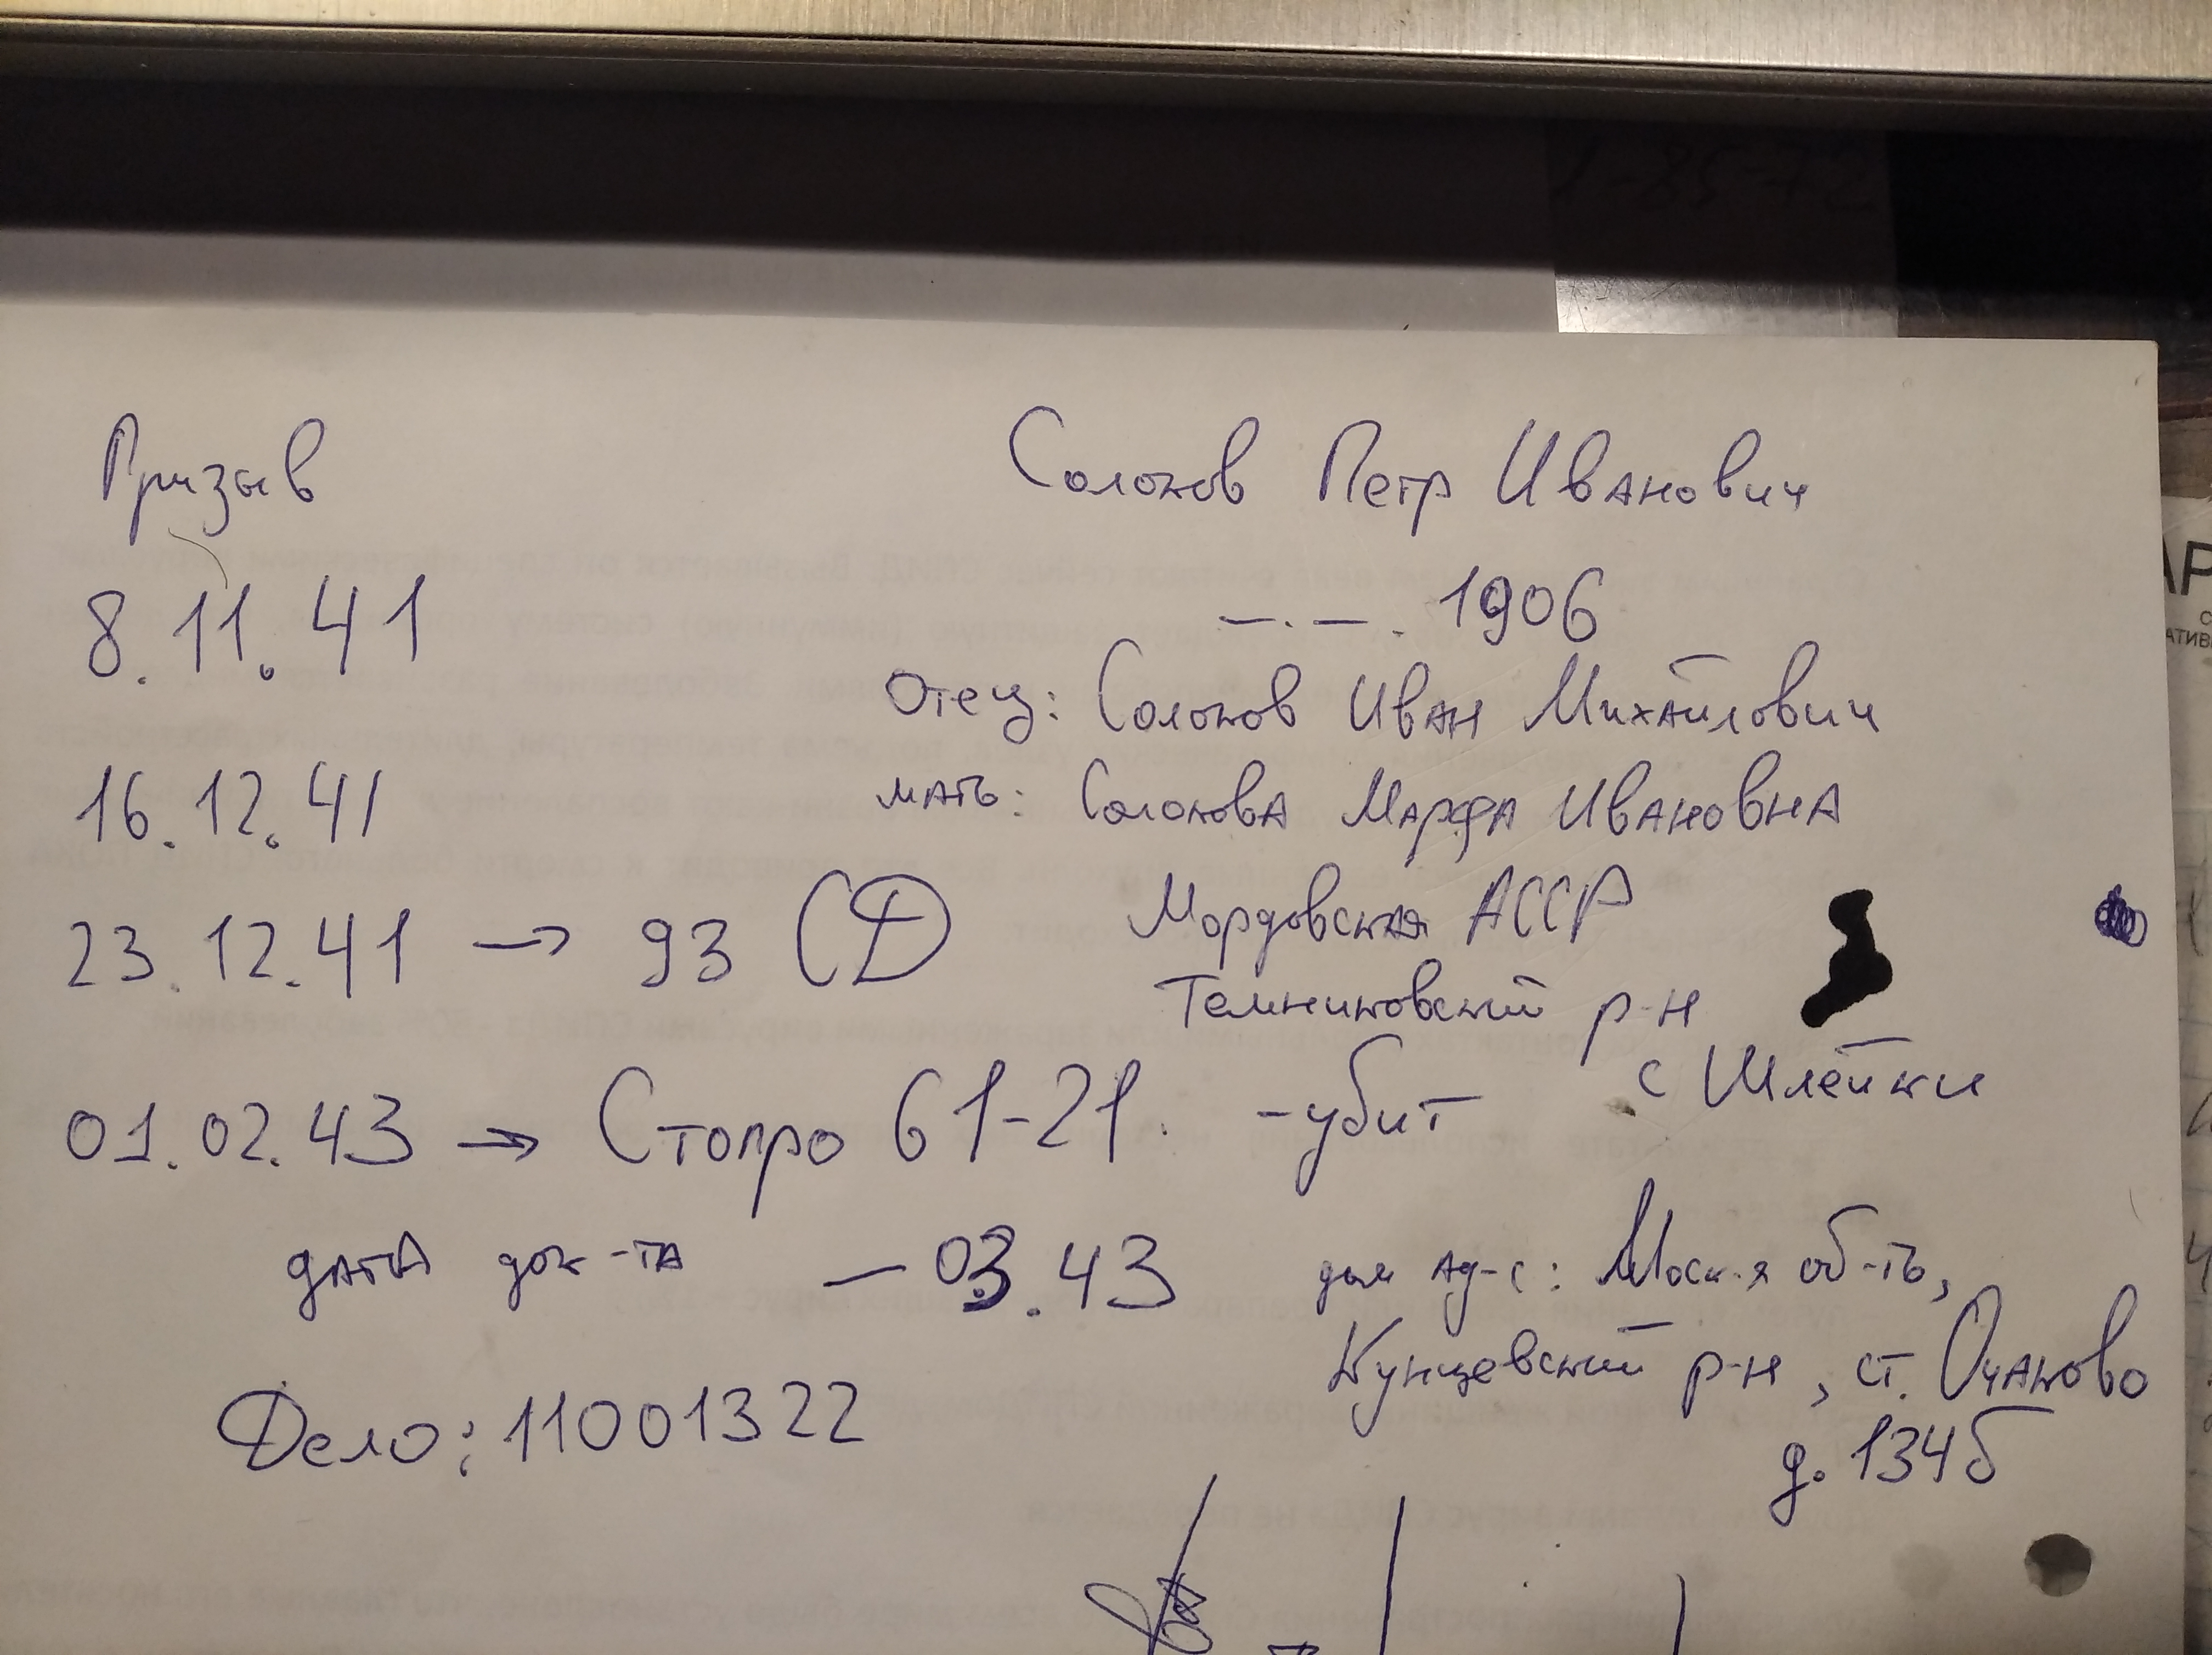 Призыв
Солоков Петр Иванович
8.11.41
—.—. 1906
Отец: Солоков Иван Михайлович
16.12.41
мать: Солокова Марфа Ивановна
23.12.41 → 93 СД
Мордовская АССР
Темниковский р-н
с Шлейки
01.02.43 → Стопро 61-21. - убит
дата док-та — 03.43
дом ад-с: Моск-я об-ть,
Кунцевский р-н, ст. Очаково
д. 134б
Дело: 11001322